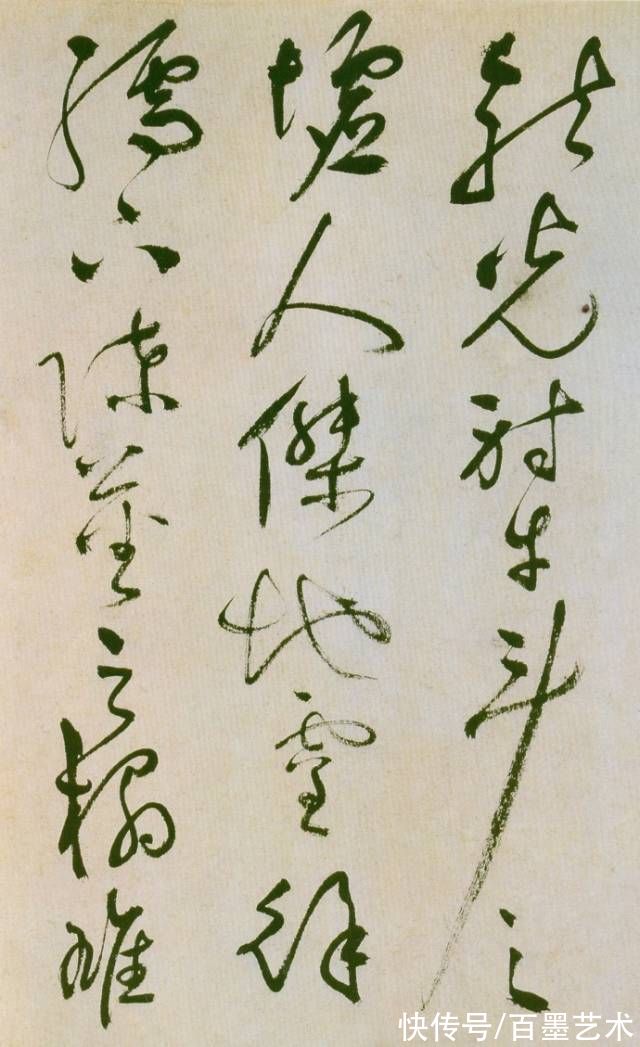 龍光射牛斗之
墟人傑地靈徐
孺下陳蕃之榻雄
快传号/百墨艺术